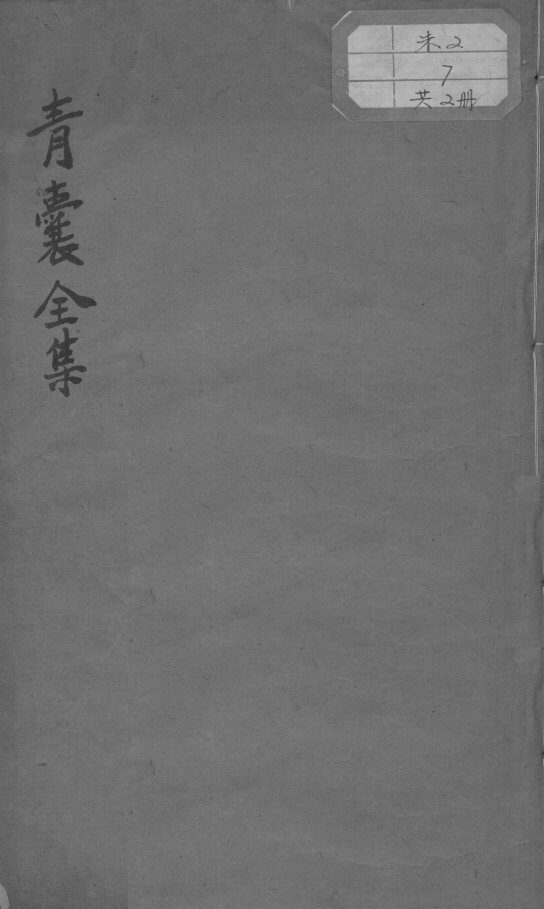 青囊全集
未2
7
共2册